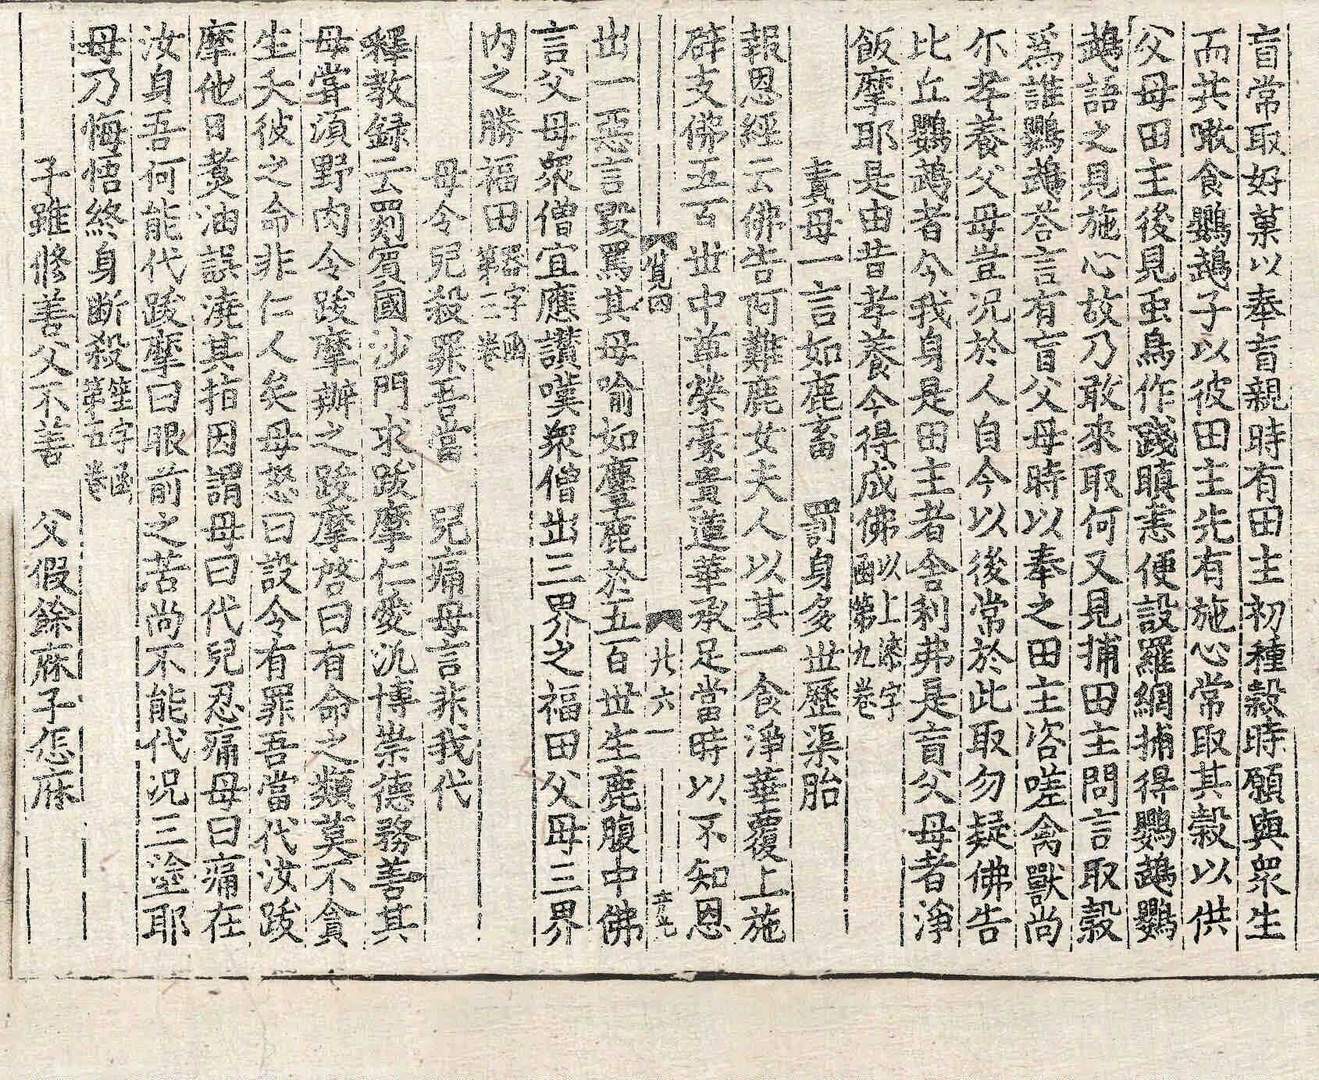 盲常取好菓以奉盲親時有田主初種穀時願與衆生
而共噉食鸚鵡子以彼田主先有施心常取其穀以供
父母田主後見虫鳥作踐瞋恚便設羅網捕得鸚鵡鸚
鵡語之見施心故乃敢來取何又見捕田主問言取穀
爲誰鸚鵡荅言有盲父母時以奉之田主咨嗟禽獸尚
尓孝養父母豈況於人自今以後常於此取勿疑佛告
比丘鸚鵡者今我身是田主者舍利弗是盲父母者淨
飯摩耶是由昔孝養今得成佛以上漆字函第九卷
責母一言如鹿畜　罰身多世歷渠胎
報恩經云佛告阿難鹿女夫人以其一食淨華覆上施
辟支佛五百世中尊榮豪貴蓮華承足當時以不知恩
覽四　廾六
出一惡言毀罵其母喻如麞鹿於五百世生鹿腹中佛
言父母衆僧宜應讚嘆衆僧出三界之福田父母三界
内之勝福田器字函第三卷
母令兒殺罪吾當　兒痛母言非我代
釋教録云罽賓國沙門求跋摩仁愛汎博崇德務善其
母嘗湏野肉令跋摩辦之跋摩啓曰有命之類莫不貪
生夭彼之命非仁人矣母怒曰設今有罪吾當代汝跋
摩他日煑油誤澆其指因謂母曰代兒忍痛母曰痛在
汝身吾何能代跋摩曰眼前之苦尚不能代況三塗耶
母乃悔悟終身断殺笙字函第五卷
子雖修善父不善　父假餘庥子怎庥